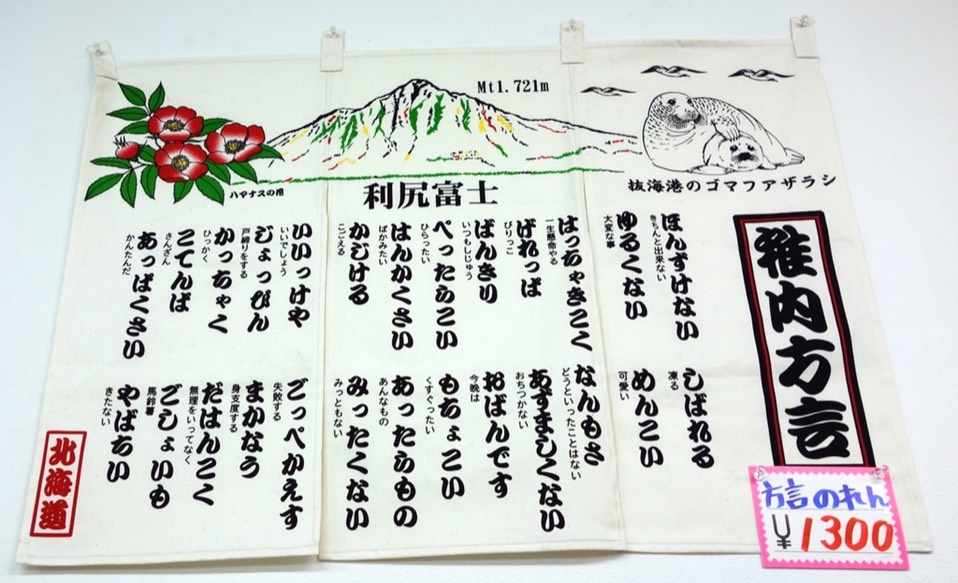 Mt1.721m
利尻富士
ハマナスの花
抜海港のゴマファザラシ
稚内方言
ほんずけない
きちんと出来ない
ゆるくない
大変な事
しばれる
凍る
めんこい
可愛い
はっちゃきこく
一生懸命やる
げれっぱ
びりっこ
ばんきり
いつもしじゅう
ぺったらこい
ひらったい
はんかくさい
ばかみたい
かじける
こごえる
なんもさ
どうといったことはない
あずましくない
おちつかない
おばんです
今晩は
もちょこい
くすぐったい
あったらもの
あんなもの
みったくない
みっともない
いいっけや
いいでしょう
じょっぴん
戸締りをする
かっちゃく
ひっかく
こてんぱ
さんざん
あっぱくさい
かんたんだ
ごっぺかえす
失敗する
まかなう
身支度する
だはんこく
無理をいってなく
ごしょいも
馬鈴薯
やばちい
きたない
北海道
方言のれん
¥1300